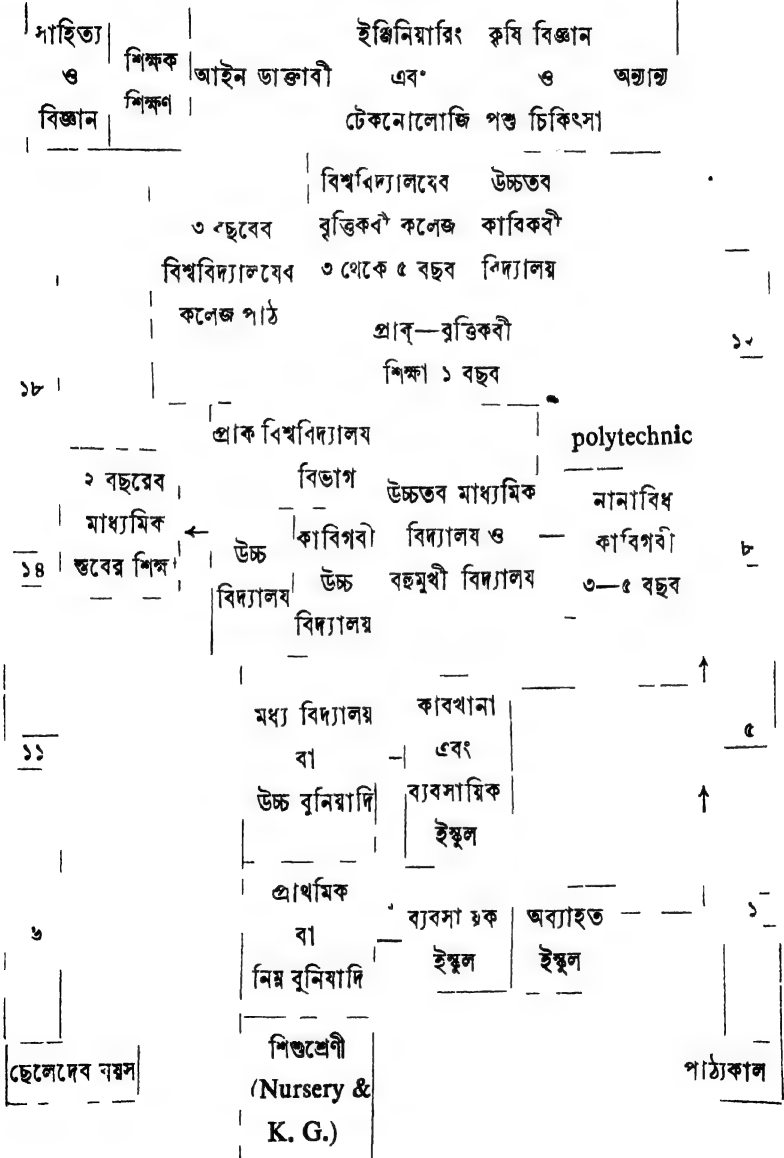 সাহিত্য
ও
বিজ্ঞান
শিক্ষক
শিক্ষণ
আইন ডাক্তাবী
ইঞ্জিনিয়ারিং
এবং
টেকনোলোজি
কৃষি বিজ্ঞান
ও
পশু চিকিৎসা
অন্যান্য
৩ বছবেব
বিশ্ববিদ্যালযেব
কলেজ পাঠ
বিশ্ববিদ্যালযেব
বৃত্তিকবী কলেজ
৩ থেকে ৫ বছব
উচ্চতব
কাবিকবী
বিদ্যালয়
প্রাক্—বৃত্তিকবী
শিক্ষা ১ বছব
১৮
১২
প্রাক বিশ্ববিদ্যালয
বিভাগ
polytechnic
২ বছরেব
মাধ্যমিক
স্তবের শিক্ষা
১৪
উচ্চ
বিদ্যালয
কাবিগবী
উচ্চ
বিদ্যালয়
উচ্চতব মাধ্যমিক
বিদ্যালয ও
বহুমুখী বিদ্যালয
নানাবিধ
কাবিগবী
৩—৫ বছব
৮
১১
মধ্য বিদ্যালয়
বা
উচ্চ বুনিয়াদি
কাবখানা
এবং
ব্যবসায়িক
ইস্কুল
৫
৬
প্রাথমিক
বা
নিম্ন বুনিযাদি
ব্যবসায়ক
ইস্কুল
অব্যাহত
ইস্কুল
১
ছেলেদেব বয়স
শিশুশ্রেণী
(Nursery &
K. G.)
পাঠ্যকাল